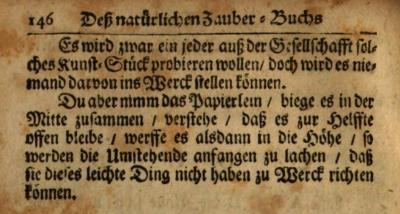 146 Deß natürlichen Zauber-Buchs
Es wird zwar ein jeder auß der Gesellschafft sol-
ches Kunst-Stück probieren wollen/ doch wird es nie-
mand darvon ins Werck stellen können.
Du aber nimm das Papierlein / biege es in der
Mitte zusammen / verstehe / daß es zur Helffte
offen bleibe / werffe es alsdann in die Höhe / so
werden die Umstehende anfangen zu lachen / daß
sie dieses leichte Ding nicht haben zu Werck richten
können.